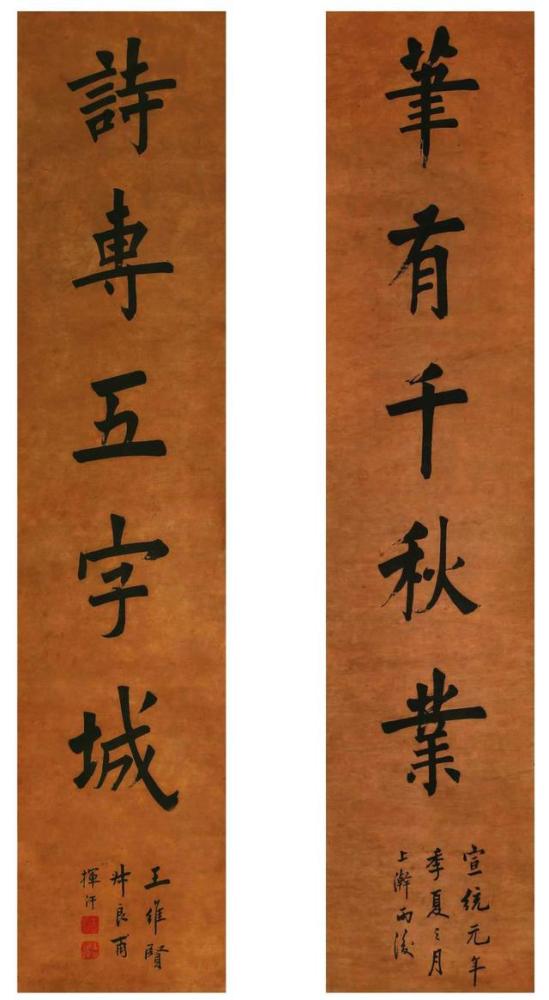 筆有千秋業
宣統元年
季夏之月
上澣雨後
詩專五字城
王維賢
良甫
揮汗